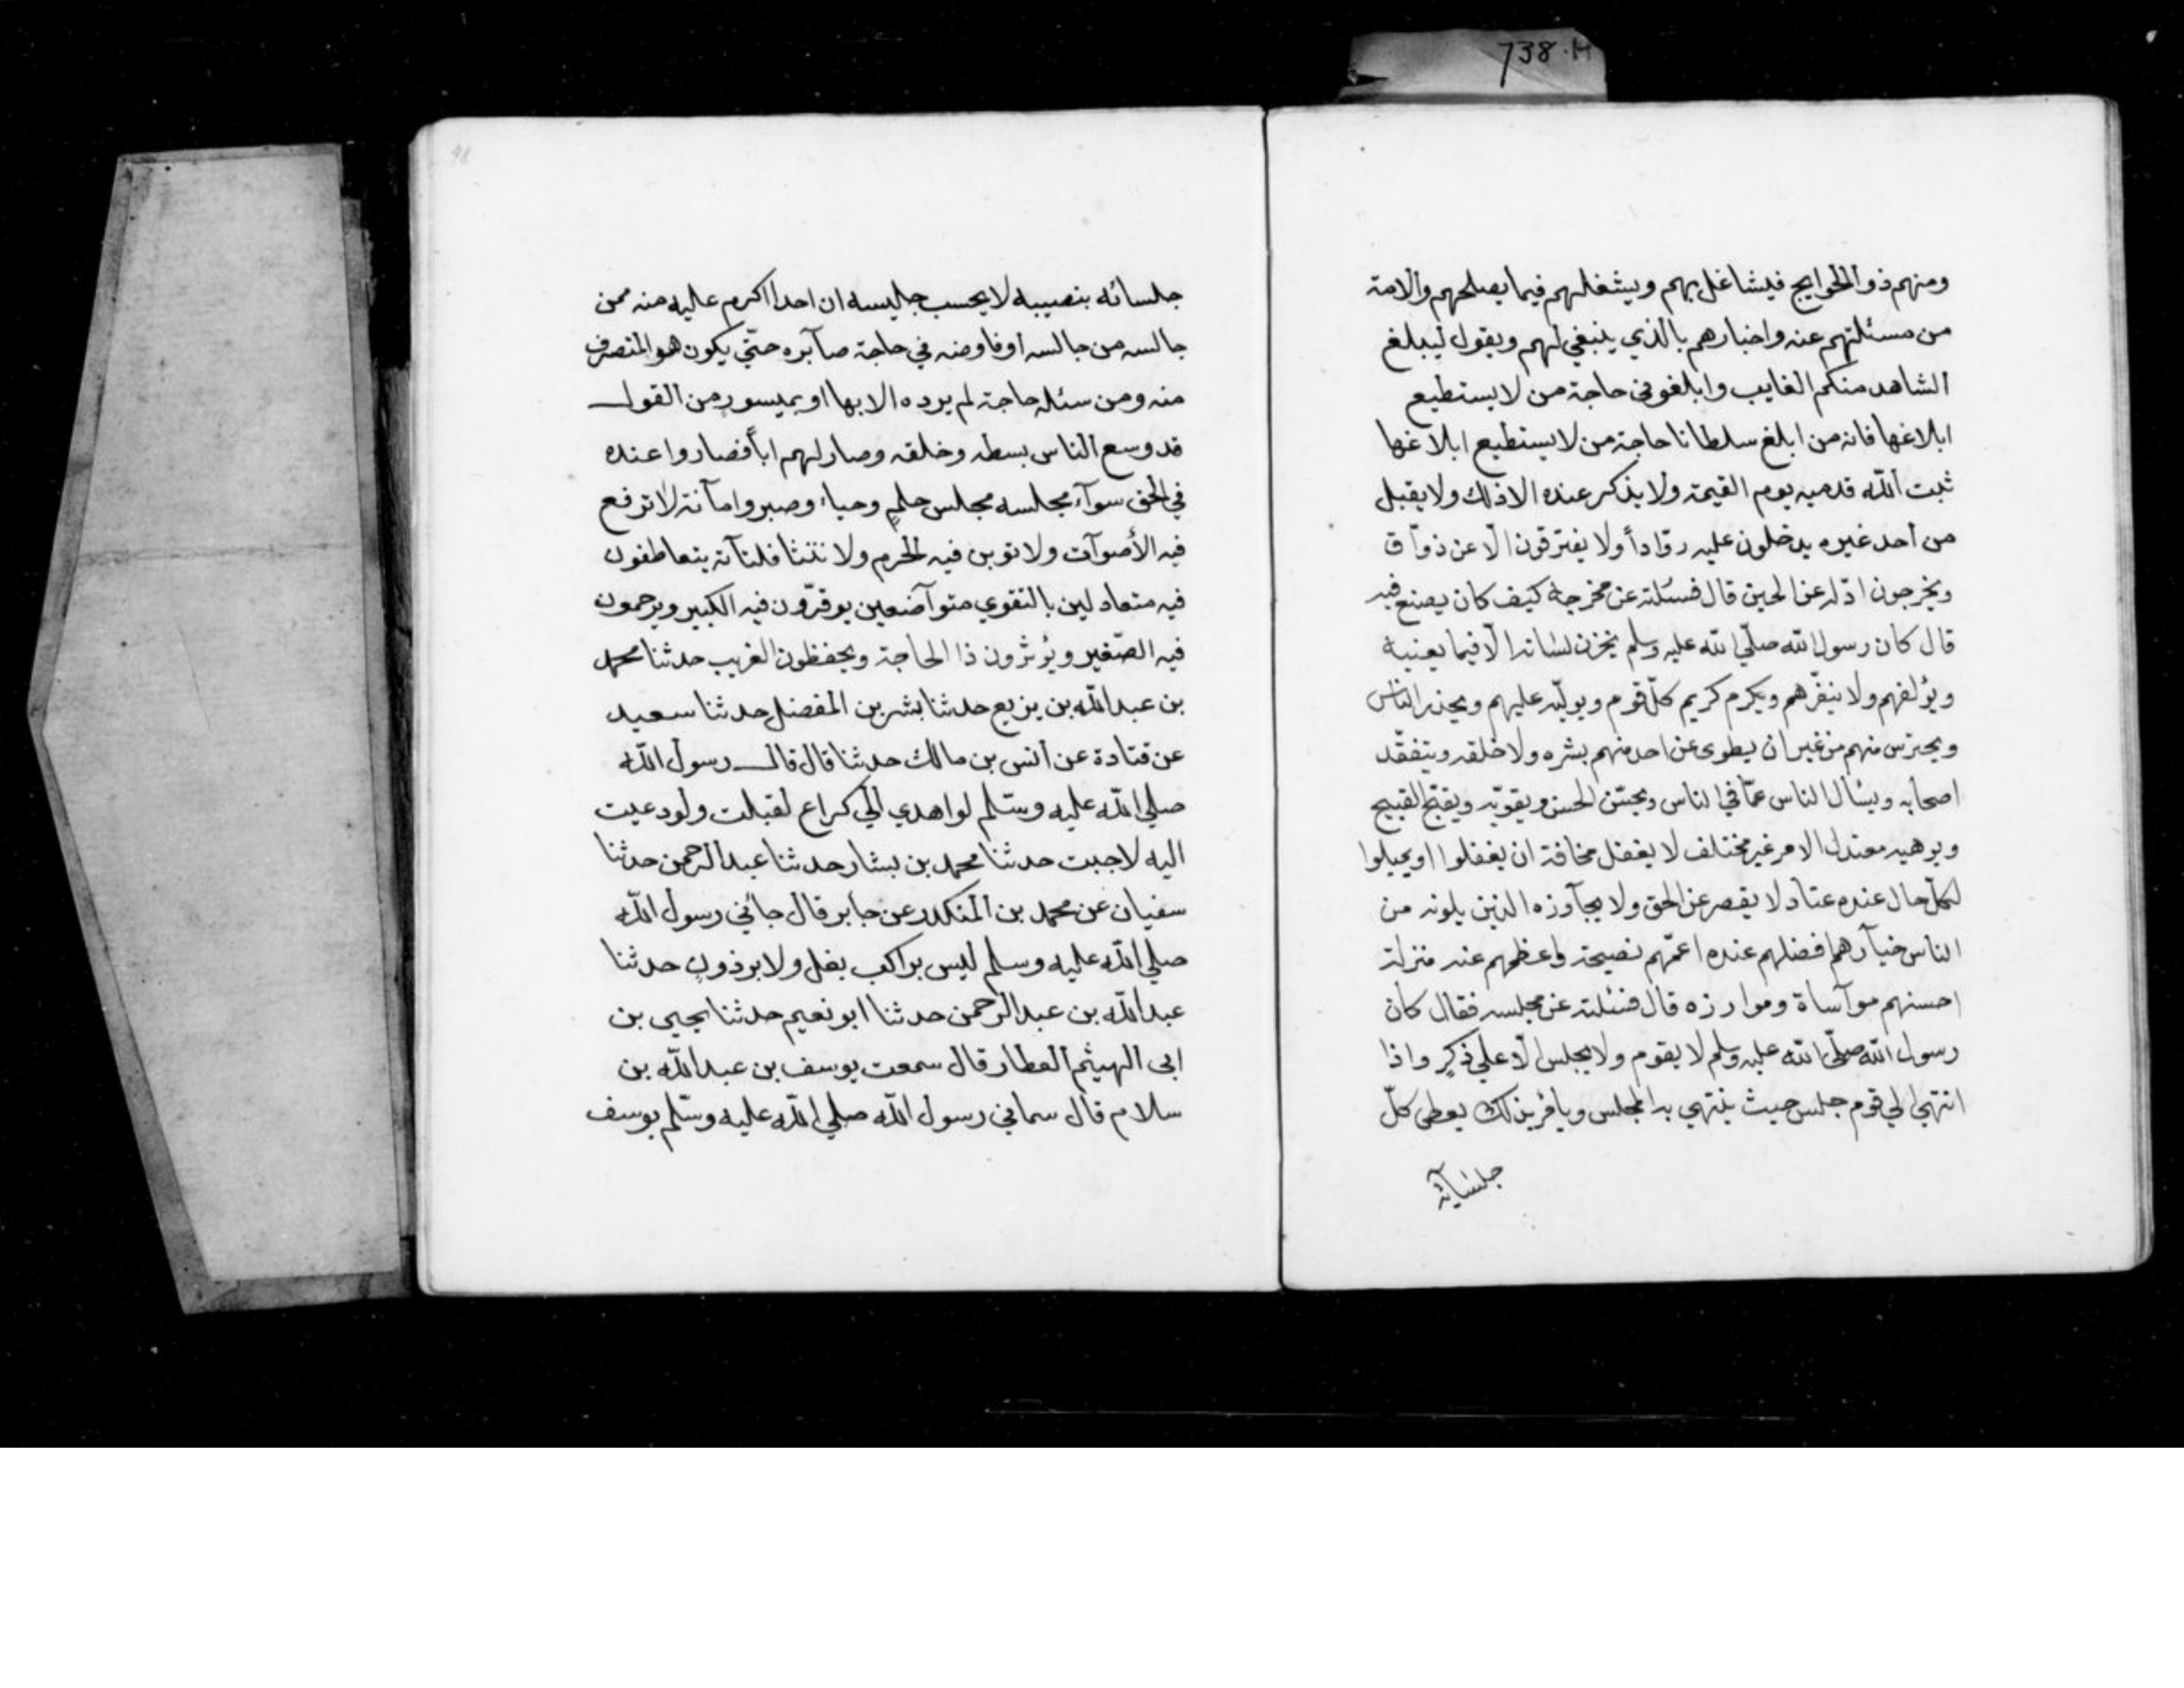 738·M
ومنهم ذو الحوايج فيشاغل بهم ويشغلهم فيما يصلحهم والامة
من مسئلتهم عنه واخبارهم بالذي ينبغي لهم ويقول ليبلغ
الشاهد منكم الغايب وابلغوني حاجة من لا يستطيع
ابلاغها فانه من ابلغ سلطانا حاجة من لا يستطيع ابلاغها
ثبت الله قدميه يوم القيمة ولا يذكر عنده الا ذلك ولا يقبل
من أحد غيره يدخلون عليه روّاداً ولا يفترقون الّا عن ذواق
ويخرجون ادلّه عن الحين قال فسئلته عن مخرجه كيف كان يصنع فيه
قال كان رسول الله صلّي الله عليه وسلم يخزن لسانه الّا فيما يعنيه
ويؤلفهم ولا ينفّرهم ويكرم كريم كلّ قوم ويولّيه عليهم ويحذر الناس
ويحترس منهم من غير ان يطوى عن احد منهم بشره ولا خلقه ويتفقّد
اصحابه ويسٔال الناس عمّا في الناس ويحسّن الحسن ويقويّه ويقبّح القبيح
ويوهيه معتدل الامر غير مختلف لا يغفل مخافة ان يغفلوا او يميلوا
لكلّ حال عنده عتاد لا يقصر عن الحق ولا يجآوزه الذين يلونه من
الناس خيآرهم افضلهم عنده اعمّهم نصيحة واعظمهم عنده منزلة
احسنهم موآساة وموارزه قال فسئلته عن مجلسه فقال كان
رسول الله صلّي الله عليه وسلم لا يقوم ولا يجلس الّا علي ذكرٍ واذا
انتهي الي قوم جلس حيث ينتهي به المجلس ويامٔر بذلك يعطى كلّ
جلسآئه
98
جلسائه بنصيبه لا يحسب جليسه ان احدا اكرم عليه منه ممن
جالسه من جالسه أو فاوضه في حاجة صآبره حتّي يكون هو المنصرف
منه ومن سئله حاجة لم يرده الا بها او بميسورٍ من القول
قد وسع الناس بسطه وخلقه وصار لهم اباً فصاروا عنده
في الحق سوآء مجلسه مجلس حلمٍ وحياء وصبر وامآنة لا ترفع
فيه الأصوآت ولا توبن فيه الحرم ولا تنثا فلتآته يتعاطفون
فيه متعادلين بالتقوي متوآضعين يوقرّون فيه الكبير ويرحمون
فيه الصّغير ويُؤثرون ذا الحاجة ويحفظون الغريب حدثنا محمد
بن عبد الله بن بزيع حدثنا بشر بن المفضل حدثنا سعيد
عن قتادة عن أنس بن مالك حدثنا قال قال رسول الله
صلي الله عليه وسّلم لو اهدي الي كراع لقبلت ولو دعيت
اليه لاجبت حدثنا محمد بن بشار حدثنا عبد الرحمن حدثنا
سفيان عن محمد بن المنكدر عن جابر قال جائني رسول الله
صلي الله عليه وسلم ليس براكب بغل ولا برذونٍ حدثنا
عبد الله بن عبد الرحمن حدثنا ابو نعيم حدثنا يحيي بن
ابى الهيثم العطار قال سمعت يوسف بن عبد الله بن
سلام قال سماني رسول الله صلي الله عليه وسّلم يوسف